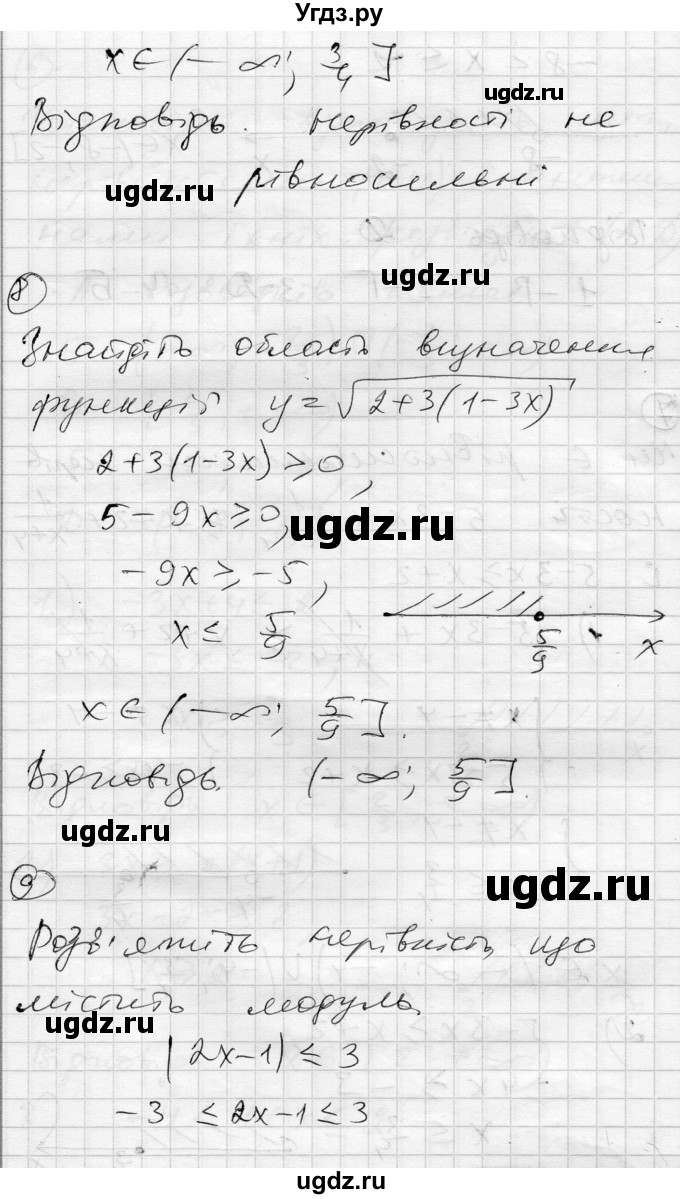 Угдз.ру
x ∈ (-∞; 3/4]
ugdz.ru
Відповідь. Нерівності не
ugdz.ru
рівносильні
ugdz.ru
8
Знайдіть область визначення
функції y = √(2+3(1-3x))
2+3(1-3x) ≥ 0;
5 - 9x ≥ 0,
ugdz.ru
-9x ≥ -5,
x ≤ 5/9
5/9 x
x ∈ (-∞; 5/9].
Відповідь. (-∞; 5/9].
ugdz.ru
9
ugdz.ru
Розв'яжіть нерівність, що
містить модуль.
ugdz.ru
|2x-1| ≤ 3
-3 ≤ 2x-1 ≤ 3
ugdz.ru